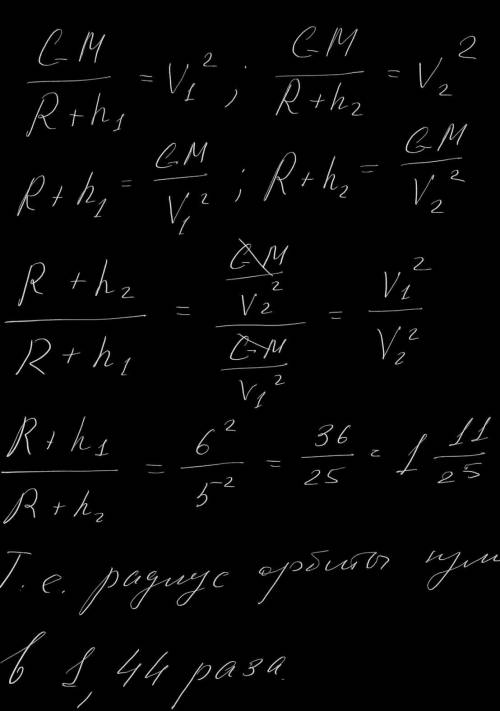 GM/(R+h₁) = V₁² ; GM/(R+h₂) = V₂²
R+h₁ = GM/V₁² ; R+h₂ = GM/V₂²
(R+h₂)/(R+h₁) = (GM/V₂²)/(GM/V₁²) = V₁²/V₂²
(R+h₁)/(R+h₂) = 6²/5² = 36/25 = 1 11/25
Т.е. радиус орбиты
в 1,44 раза.